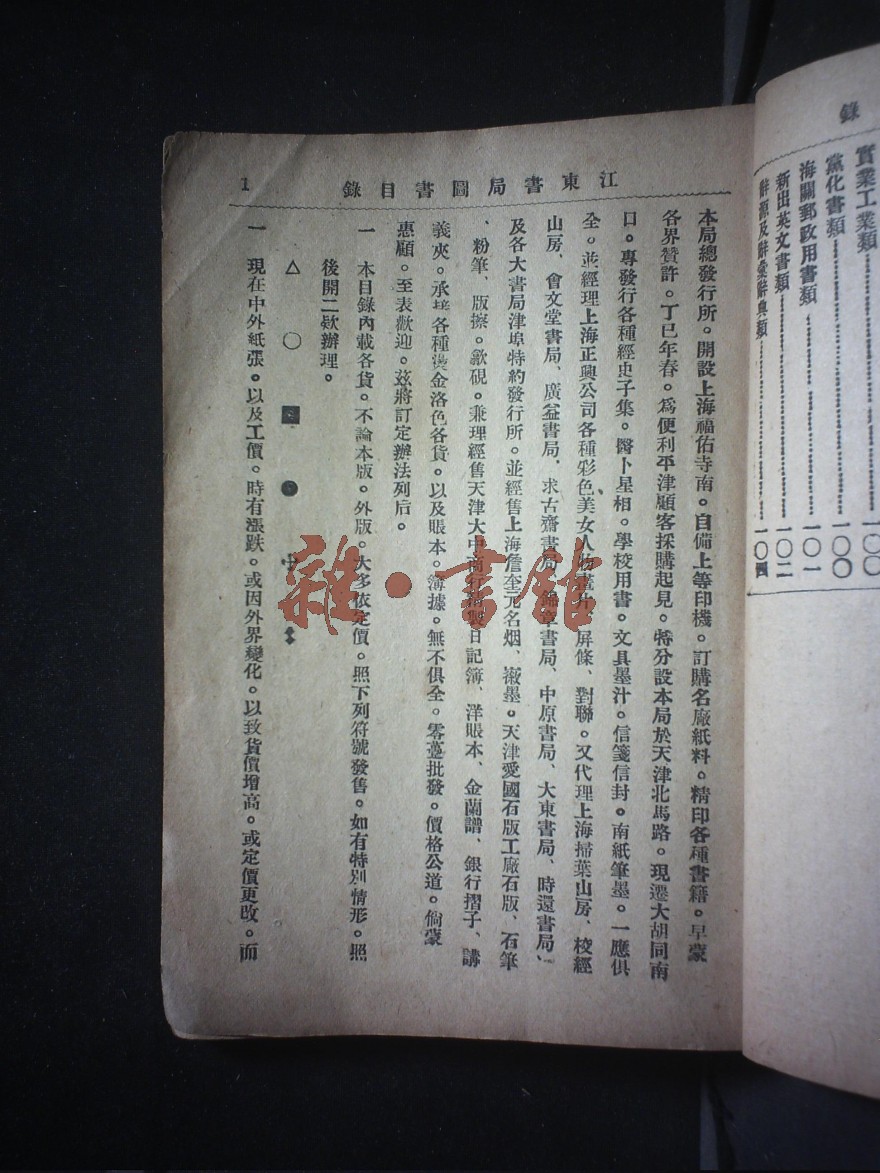 錄
實業工業類 一〇〇
黨化書類 一〇〇
海關郵政用書類 一〇一
新出英文書類 一〇二
辭源及辭彙辭典類 一〇四
江東書局圖書目錄
1
本局總發行所。開設上海福佑寺南。自備上等印機。訂購名廠紙料。精印各種書籍。早蒙
各界贊許。丁巳年春。爲便利平津顧客採購起見。特分設本局於天津北馬路。現遷大胡同南
口。專發行各種經史子集。醫卜星相。學校用書。文具墨汁。信箋信封。南紙筆墨。一應俱
全。並經理上海正興公司各種彩色美女人物畫片、屏條、對聯。又代理上海掃葉山房、校經
山房、會文堂書局、廣益書局、求古齋書局、錦章書局、中原書局、大東書局、時還書局、
及各大書局津埠特約發行所。並經售上海詹奎元名烟、徽墨。天津愛國石版工廠石版、石筆
、粉筆、版擦。歙硯。兼理經售天津大中商行精製日記簿、洋賬本、金蘭譜、銀行摺子、講
義夾。承接各種燙金洛色各貨。以及賬本。簿據。無不俱全。零躉批發。價格公道。倘蒙
惠顧。至表歡迎。茲將訂定辦法列后。
一 本目錄內載各貨。不論本版。外版。大多依定價。照下列符號發售。如有特別情形。照
後開二欵辦理。
△ 〇 ●
一 現在中外紙張。以及工價。時有漲跌。或因外界變化。以致貨價增高。或定價更改。而
雜·書館